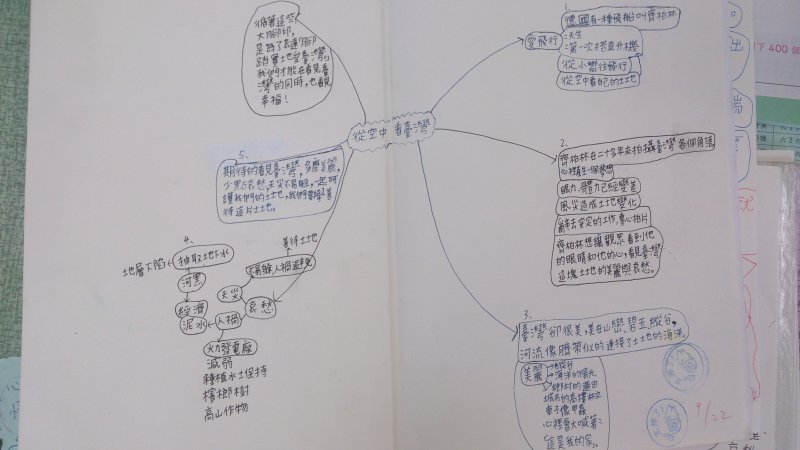 從空中看臺灣
1.
愛飛行
德國有一種飛船叫齊柏林
天生
第一次搭直升機
從小嚮往飛行
從空中看自己的土地
2.
齊柏林在二十多年去拍攝臺灣各個角落
心裡產生一個夢想
眼力、體力已經變差
風災造成土地變化
辭去安定的工作,專心拍片
齊柏林想讓觀眾看到他
的眼睛和他的心,看見臺灣
這塊土地的美麗與哀愁。
3.
臺灣卻很美,美在山巒、碧玉縱谷,
河流像臍帶似的連接了土地的海洋。
美麗
海洋的陽光
鄉村的蓮田
城市的高樓林立
車子像甲蟲
心裡會大喊著:
這是我的家。
9/22
4、
善待土地
不易躲人禍避免
天災
哀愁
人禍
抽取地下水
地層下陷
河黑
經濟
泥水
火力發電廠
減弱
種植水土保持
檳榔樹
高山作物
5、
期待的看見臺灣,多麼美麗,
少點哀愁,天災不易躲,一起呵
護我們的土地,我們要學善
待這片土地。
循著這些
大腳印,
是時了表達「腳
踏實土地愛臺灣」
我們才能在看見臺
灣的同時,也看見
幸福!
下400個